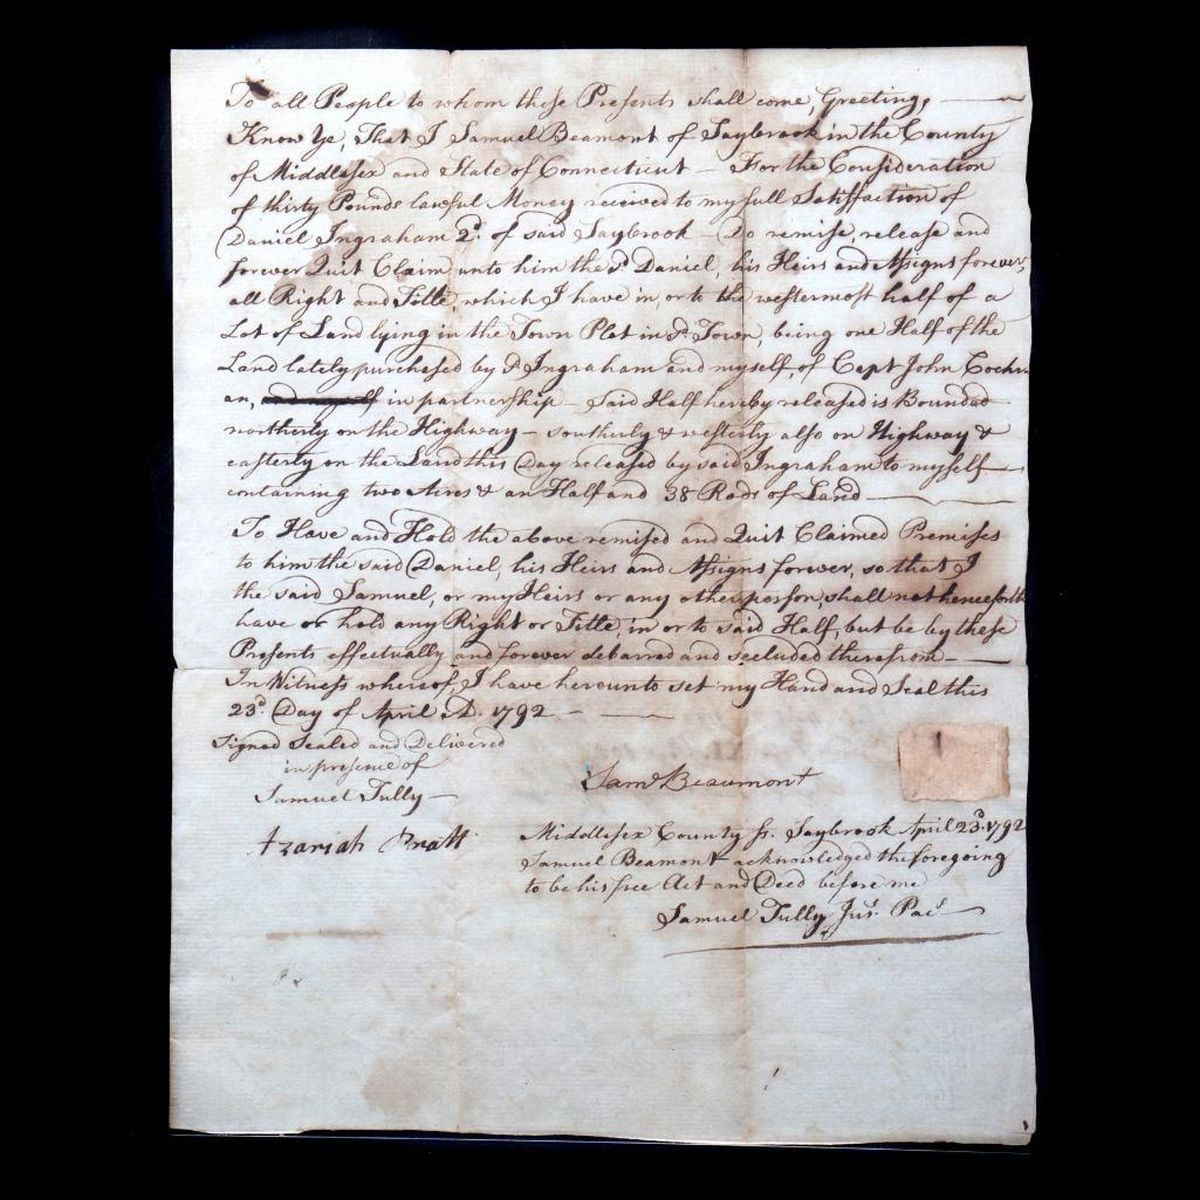 To all People to whom these Presents shall come, Greeting,
Know Ye, That I Samuel Beamont of Saybrook in the County
of Middlesex and State of Connecticut - For the Consideration
of thirty Pounds lawful Money received to my full Satisfaction of
Daniel Ingraham 2d. of said Saybrook - Do remise, release and
forever Quit Claim unto him the sd. Daniel, his Heirs and Assigns forever,
all Right and Title, which I have in, or to the westermost half of a
Lot of Land lying in the Town Plot in sd. Town, being one Half of the
Land lately purchased by sd Ingraham and myself, of Capt John Cochr-
an, in partnership - Said Half hereby released is Bounded
northerly on the Highway - southerly & westerly also on Highway &
easterly on the Land this Day released by said Ingraham to myself -
containing two Acres & an Half and 38 Rods of Land -
To Have and Hold the above remised and Quit Claimed Premises
to him the said Daniel, his Heirs and Assigns forever, so that I
the said Samuel, or my Heirs or any other person, shall not henceforth
have or hold any Right or Title, in or to said Half, but be by these
Presents effectually and forever debarred and secluded therefrom -
In Witness whereof, I have hereunto set my Hand and Seal this
23d. Day of April AD. 1792 -
Signed Sealed and Delivered
in presence of
Samuel Tully -
Azariah Pratt
Saml Beaumont
Middlesex County Ss. Saybrook April 23d. 1792
Samuel Beamont acknowledged the foregoing
to be his free Act and Deed before me
Samuel Tully Jus. Pac